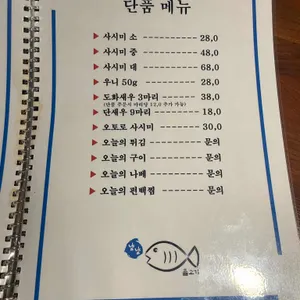 단품 메뉴
▶ 사시미 소 ---------- 28,0
▶ 사시미 중 ---------- 48,0
▶ 사시미 대 ---------- 68,0
▶ 우니 50g ---------- 28,0
▶ 도화새우 3마리 ------- 38,0
(단품 주문시 마리당 12,0 추가 가능)
▶ 단새우 9마리 -------- 18,0
▶ 오토로 사시미 ------- 30,0
▶ 오늘의 튀김 -------- 문의
▶ 오늘의 구이 -------- 문의
▶ 오늘의 나베 -------- 문의
▶ 오늘의 전백찜 ------- 문의